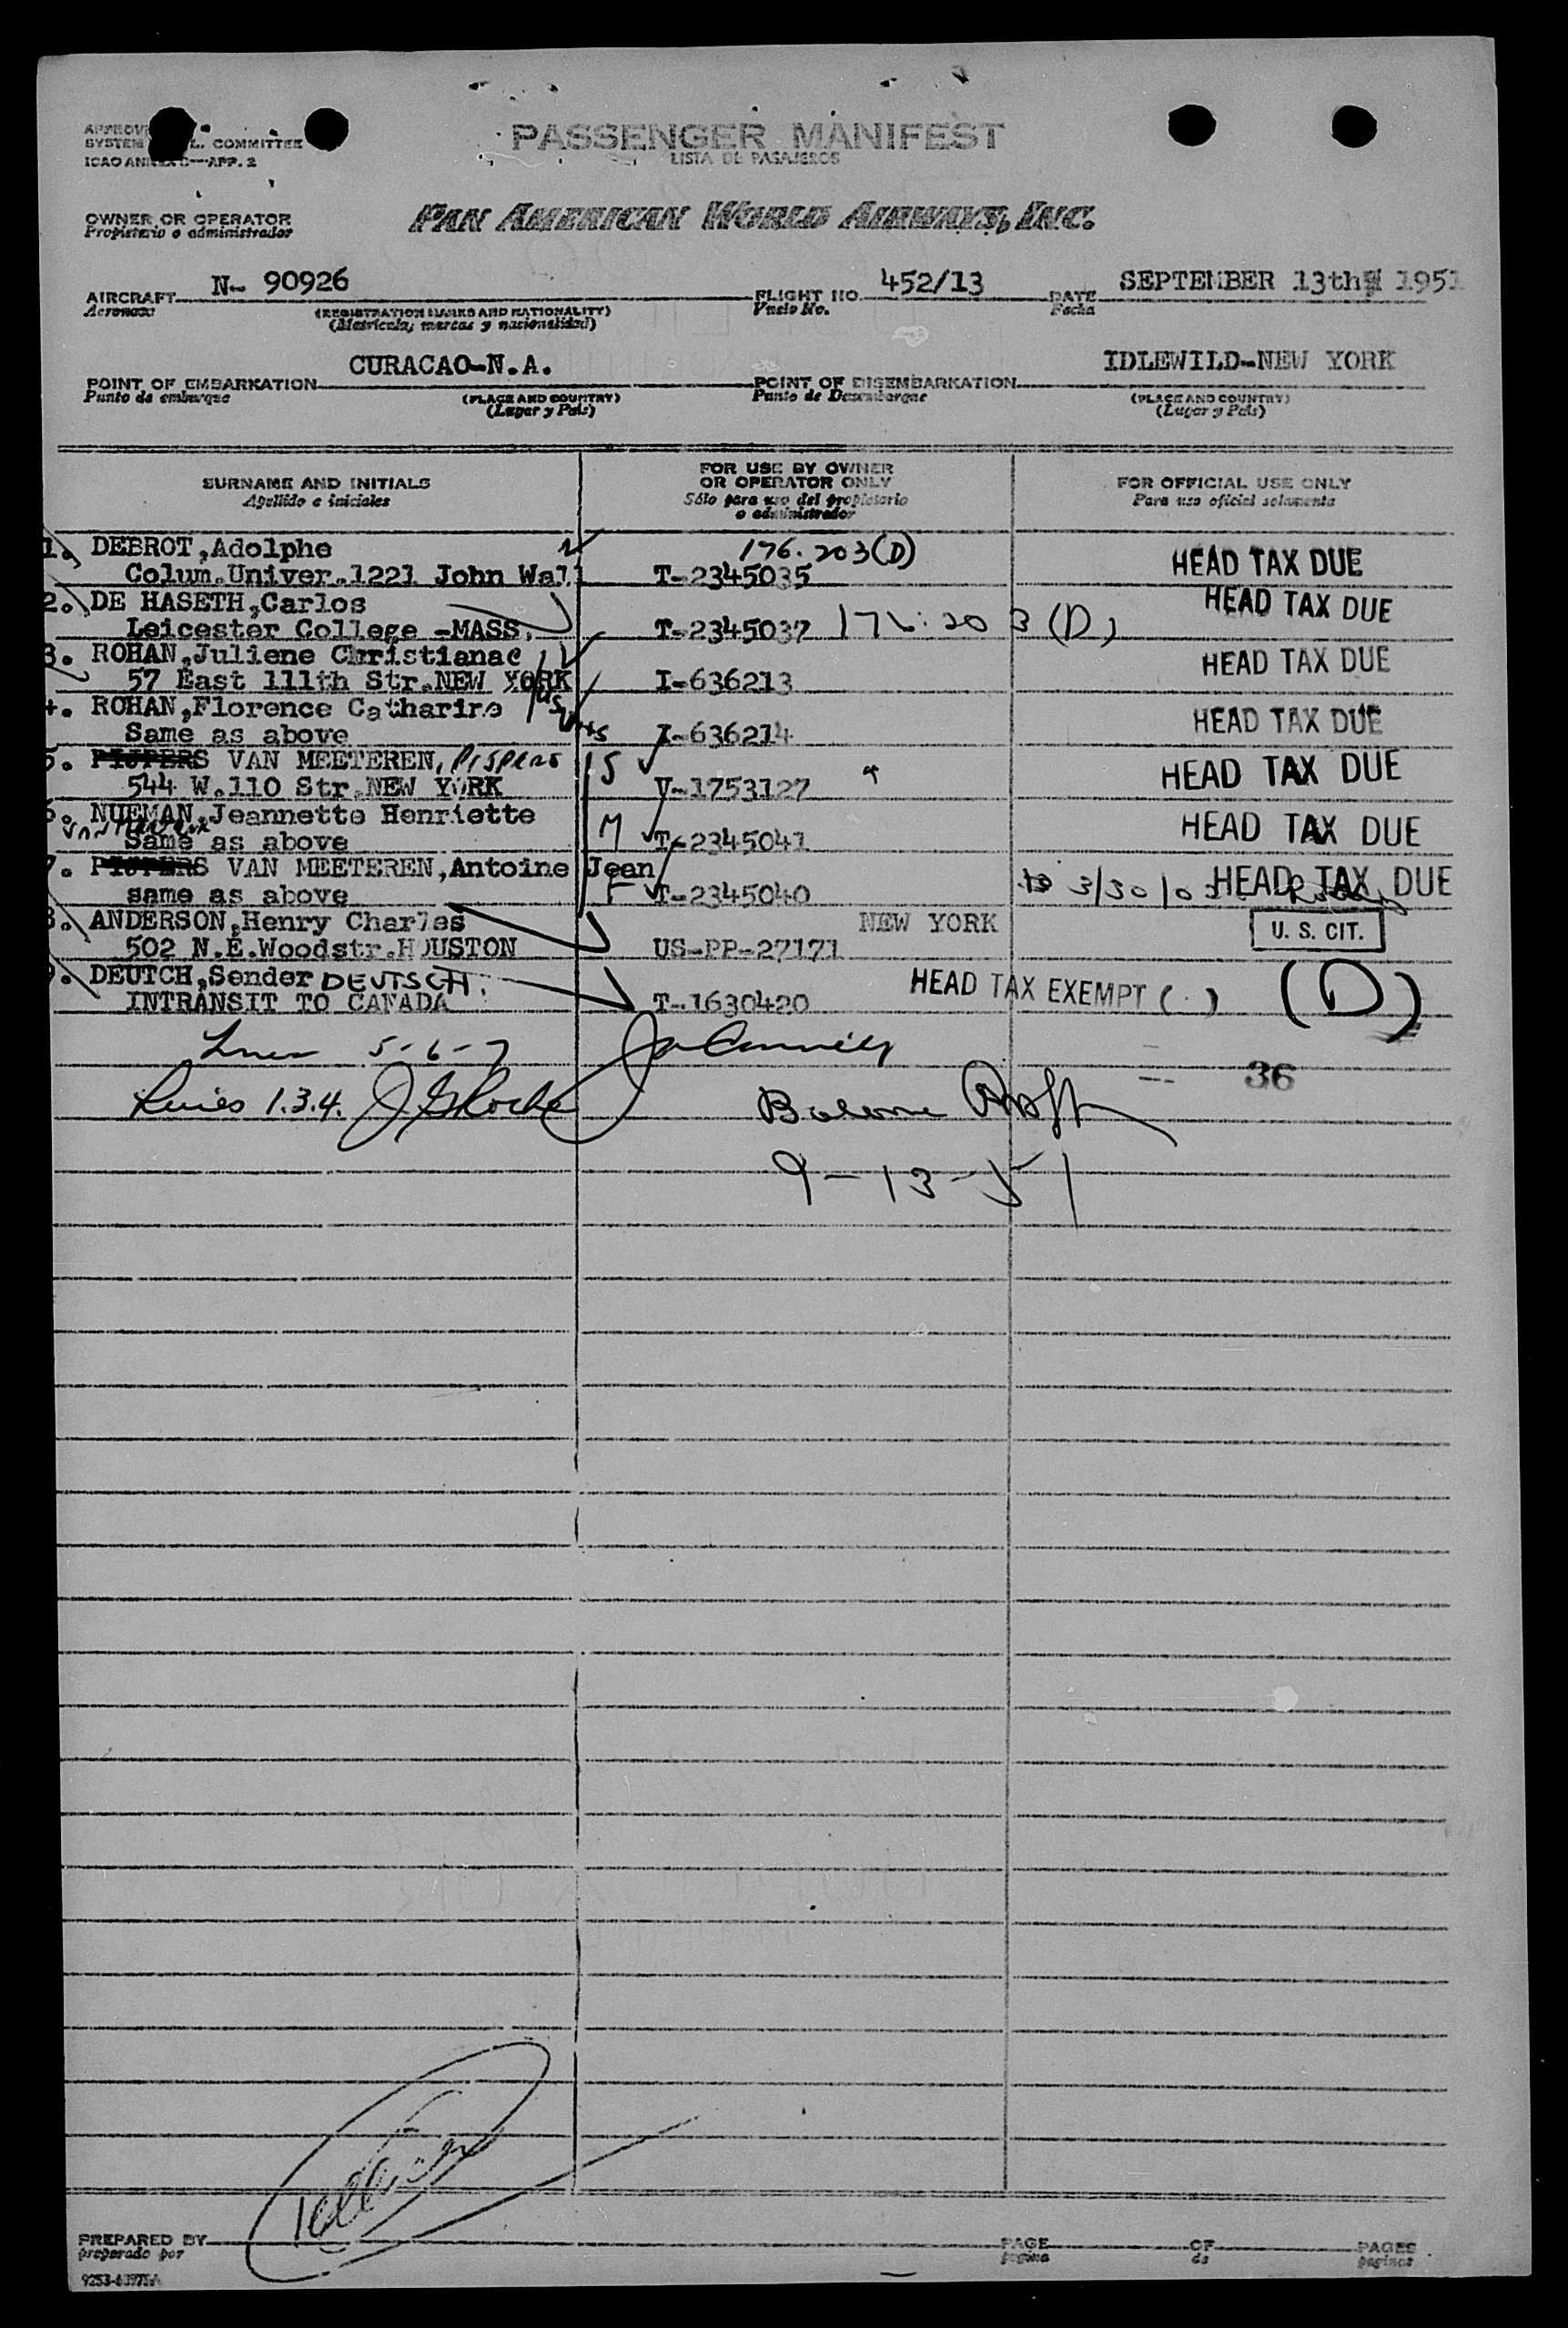 PASSENGER MANIFEST
LISTA DE PASAJEROS
SYSTEM COMMITTEE
ICAO ANNEX APP. 2
OWNER OR OPERATOR
Propietario o administrador
PAN AMERICAN WORLD AIRWAYS, INC.
AIRCRAFT N- 90926 FLIGHT NO. 452/13 DATE SEPTEMBER 13th 1951
Aeronave (REGISTRATION MARKS AND NATIONALITY) Vuelo No. Fecha
(Matrícula, marcas y nacionalidad)
POINT OF EMBARKATION CURACAO-N.A. POINT OF DISEMBARKATION IDLEWILD-NEW YORK
Punto de embarque (PLACE AND COUNTRY) Punto de Desembarque (PLACE AND COUNTRY)
(Lugar y País) (Lugar y País)
SURNAME AND INITIALS FOR USE BY OWNER OR OPERATOR ONLY FOR OFFICIAL USE ONLY
Apellido e iniciales Sólo para uso del propietario o administrador Para uso oficial solamente
1. DEBROT,Adolphe 176.203(D) HEAD TAX DUE
Colum.Univer.1221 John Wall T-2345035
2. DE HASETH,Carlos HEAD TAX DUE
Leicester College -MASS. T-2345037 176.203(D)
3. ROHAN,Juliene Christianae HEAD TAX DUE
57 East 111th Str.NEW YORK I-636213
4. ROHAN,Florence Catharine HEAD TAX DUE
Same as above I-636214
5. PIJPERS VAN MEETEREN, Pijpers S HEAD TAX DUE
544 W.110 Str.NEW YORK V-1753127
6. NUEMAN,Jeannette Henriette M HEAD TAX DUE
Same as above T-2345041
7. PIJPERS VAN MEETEREN,Antoine Jean HEAD TAX DUE
same as above F T-2345040 3/30/0
8. ANDERSON,Henry Charles NEW YORK U. S. CIT.
502 N.E.Woodstr.HOUSTON US-PP-27171
9. DEUTCH,Sender DEUTSCH. HEAD TAX EXEMPT ( ) (D)
INTRANSIT TO CANADA T-1630420
5-6-7
36
Lines 1.3.4.
9-13-51
PREPARED BY PAGE OF PAGES
preparado por página de páginas